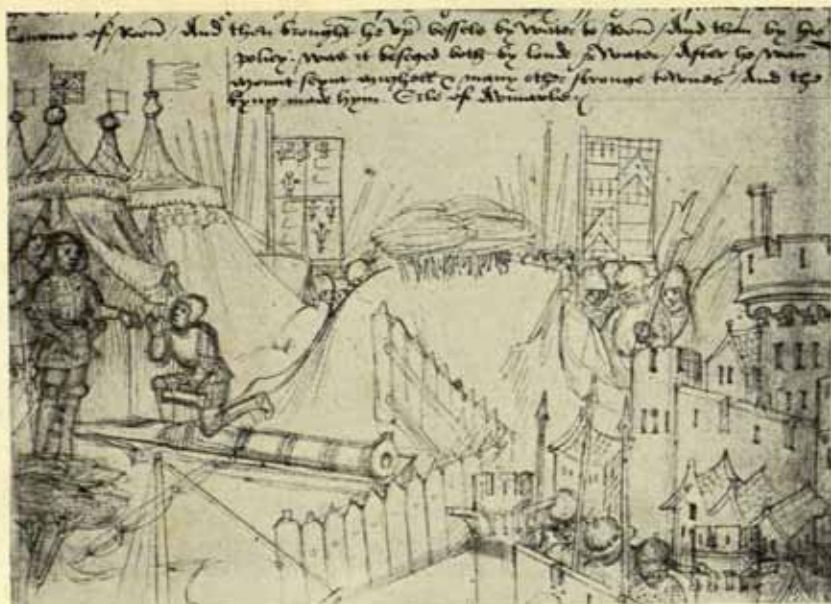 of Roon / And then brought he up vessels by water to Roon / And then by his
policy was it beseged both by londe & water / After he wan
mount seynt mighell & many other stronge townes / And the
kyng made hym Erle of